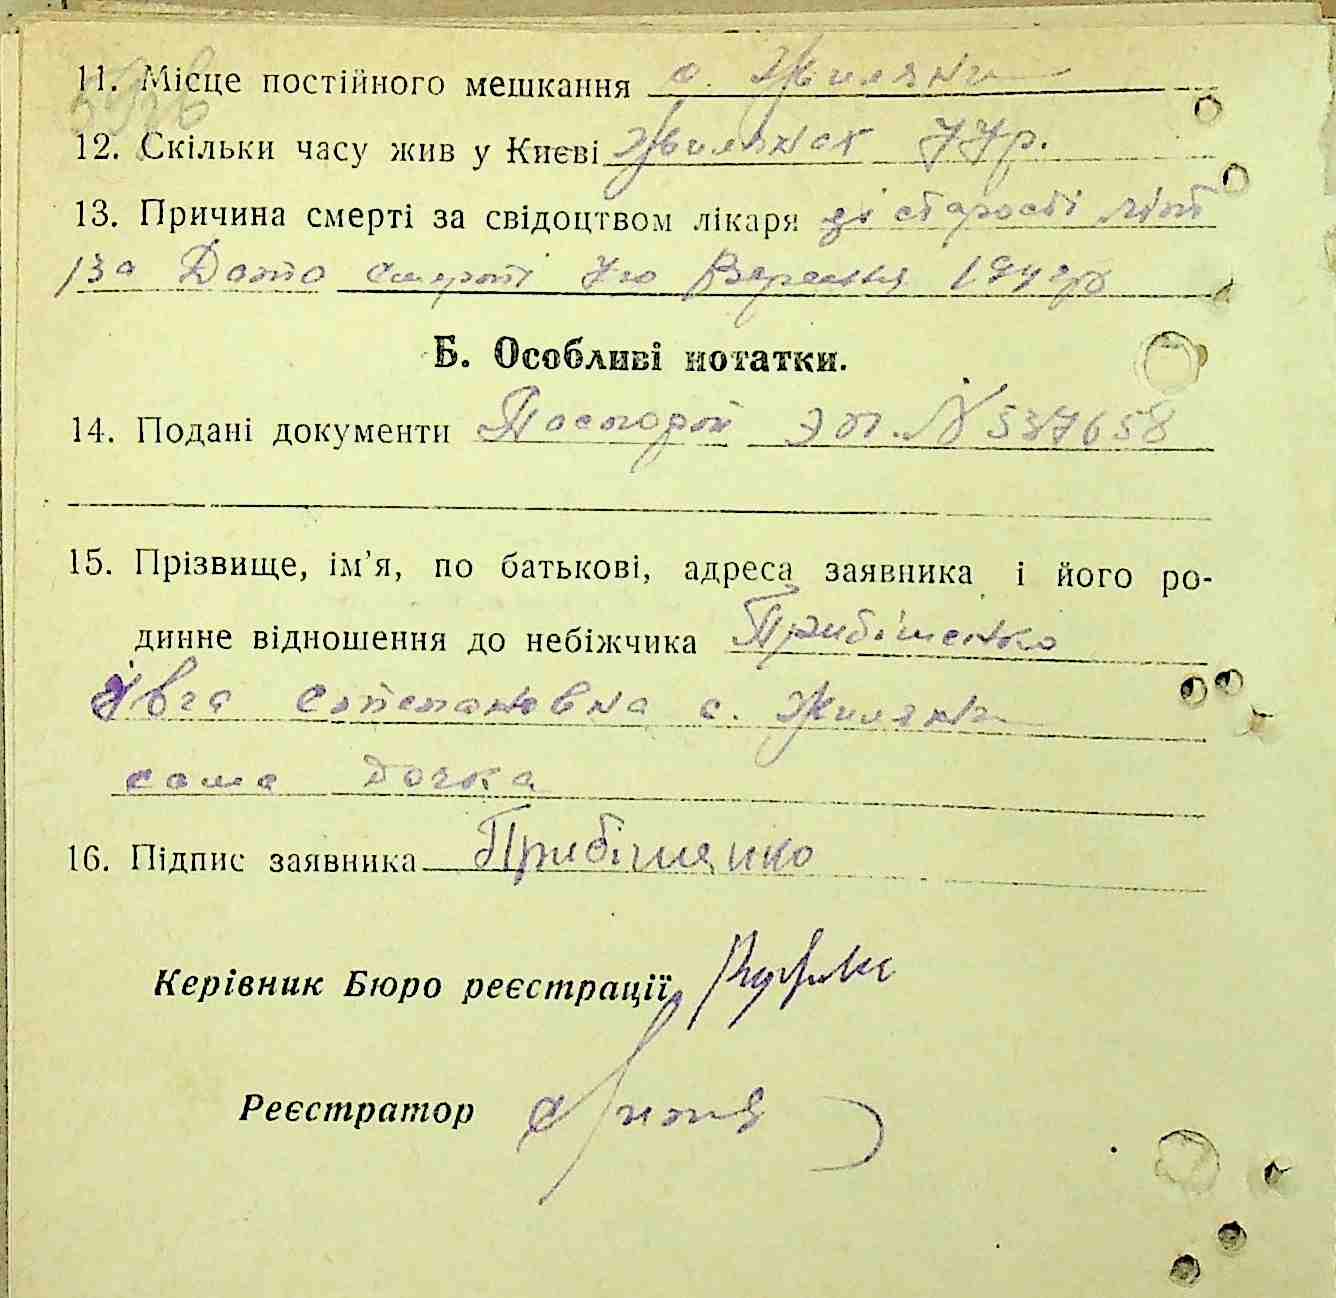 11. Місце постійного мешкання с. Жиляни
12. Скільки часу жив у Києві Жилянах 77 р.
13. Причина смерті за свідоцтвом лікаря зі старості літ
13а Дата смерті 7го Вересня 1942 р
Б. Особливі нотатки.
14. Подані документи Паспорт ЭП. № 537658
15. Прізвище, ім'я, по батькові, адреса заявника і його ро-
динне відношення до небіжчика Прибішенко
Івга Степановна с. Жиляни
сама дочка
16. Підпис заявника Прибішенко
Керівник Бюро реєстрації
Реєстратор